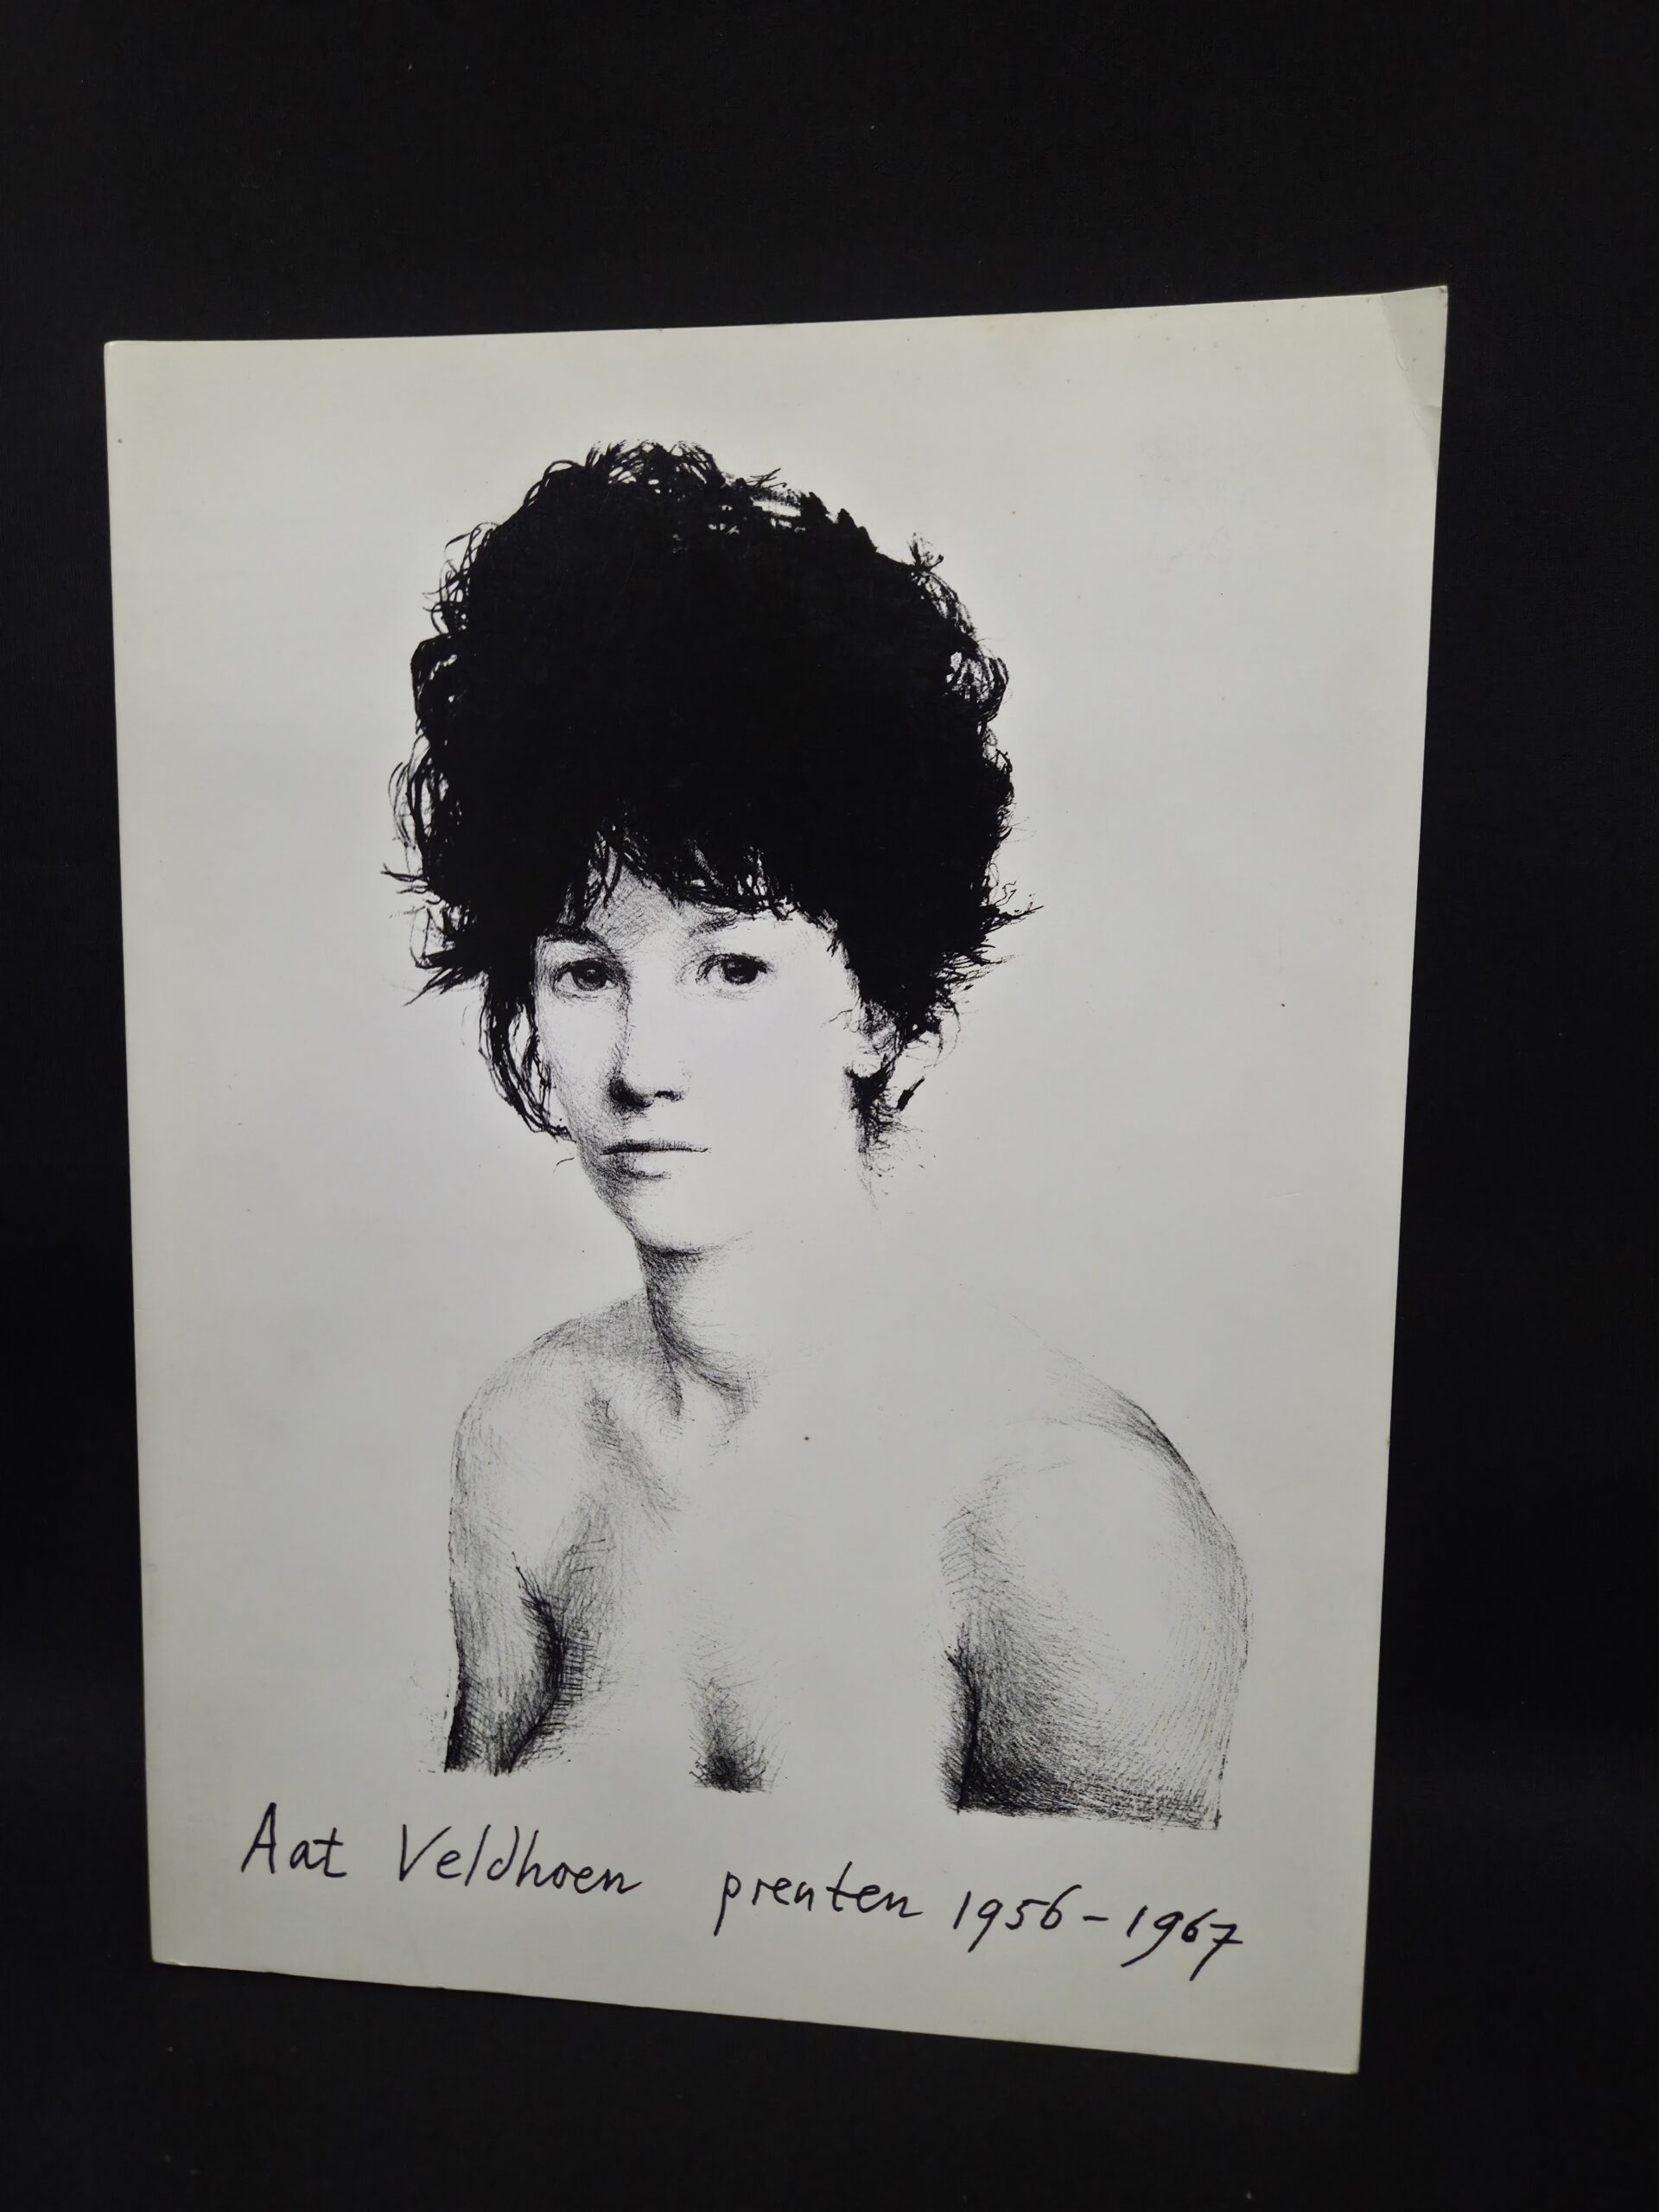 Aat Veldhoen prenten 1956-1967